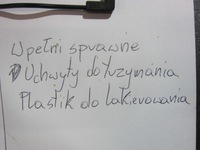 W pełni sprawne
Uchwyty do tuzymania
Plastik do lakierowania